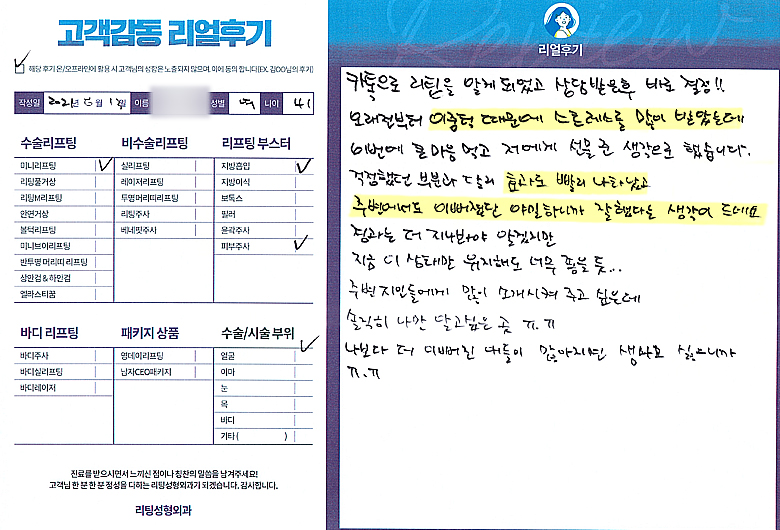 고객감동 리얼후기
해당 후기 온/오프라인에 활용 시 고객님의 성함은 노출되지 않으며, 이에 동의 합니다(EX. 김OO님의 후기)
작성일 2021년 6월 1일 이름 성별 여 나이 41
수술리프팅 비수술리프팅 리프팅 부스터
미니리프팅 실리프팅 지방흡입
리팅풀거상 레이저리프팅 지방이식
리팅M리프팅 투명머리띠리프팅 보톡스
안면거상 리팅주사 필러
볼턱리프팅 베네핏주사 윤곽주사
미니브이리프팅 피부주사
반투명 머리띠 리프팅
상안검 & 하안검
엘라스티꿈
바디 리프팅 패키지 상품 수술/시술 부위
바디주사 영데이리프팅 얼굴
바디실리프팅 남자CEO패키지 이마
바디레이저 눈
목
바디
기타 ( )
진료를 받으시면서 느끼신 점이나 칭찬의 말씀을 남겨주세요!
고객님 한 분 한 분 정성을 다하는 리팅성형외과가 되겠습니다. 감사합니다.
리팅성형외과
Review
리얼후기
카톡으로 리팅을 알게 되었고 상담받은후 바로 결정!!
오래전부터 이중턱 때문에 스트레스를 많이 받았는데
이번에 큰 마음 먹고 저에게 선물 준 생각으로 했습니다.
걱정했던 부분과 달리 효과도 빨리 나타났고
주변에서도 이뻐졌단 야말하니까 잘했다는 생각이 드네요
결과는 더 지나봐야 알겠지만
지금 이 상태만 유지해도 너무 좋을 듯...
주변 지인들에게 많이 소개시켜 주고 싶은데
솔직히 나만 알고싶은 곳 ㅠ.ㅠ
나보다 더 이뻐진 애들이 많아지면 생각도 싫으니까
ㅠ.ㅠ